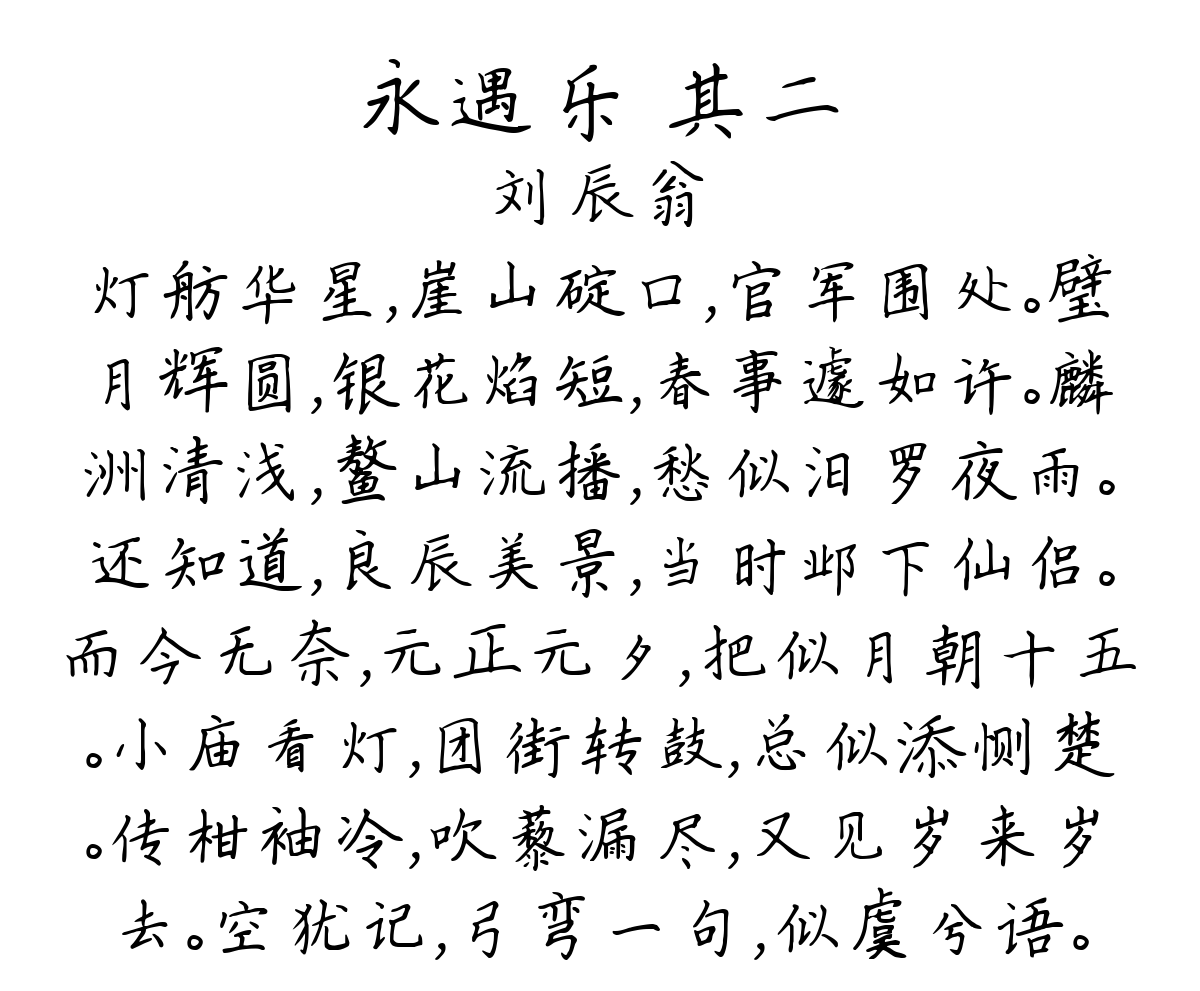 永遇乐 其二
刘辰翁
灯舫华星,崖山碇口,官军围处。璧
月辉圆,银花焰短,春事遽如许。麟
洲清浅,鳌山流播,愁似汨罗夜雨。
还知道,良辰美景,当时邺下仙侣。
而今无奈,元正元夕,把似月朝十五
。小庙看灯,团街转鼓,总似添恻楚
。传柑袖冷,吹藜漏尽,又见岁来岁
去。空犹记,弓弯一句,似虞兮语。